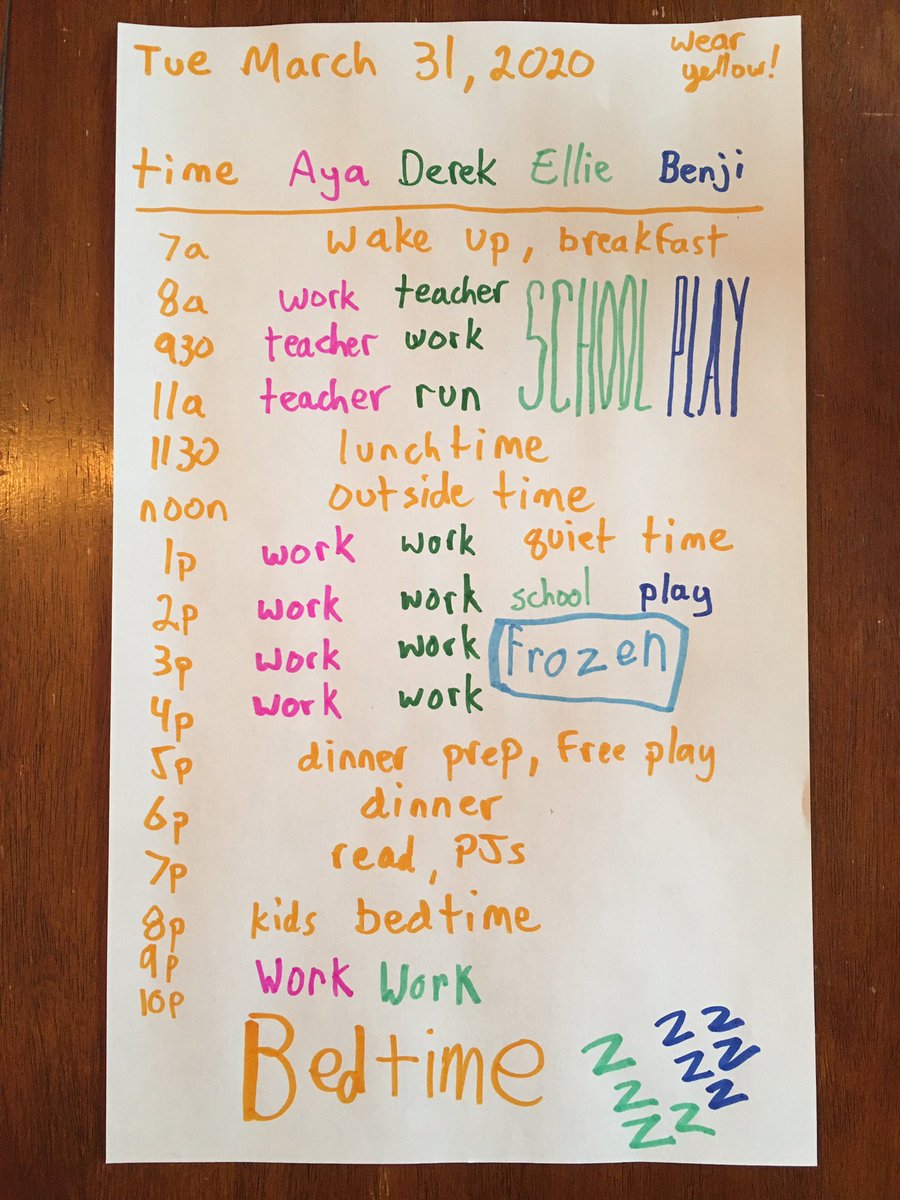 Tue March 31, 2020 wear yellow!
time Aya Derek Ellie Benji
7a wake up, breakfast
8a work teacher SCHOOL PLAY
930 teacher work
11a teacher run
1130 lunchtime
noon outside time
1p work work quiet time
2p work work school play
3p work work Frozen
4p work work
5p dinner prep, Free play
6p dinner
7p read, PJs
8p kids bedtime
9p work work
10p
Bedtime
z z z
z z z
z z
z z